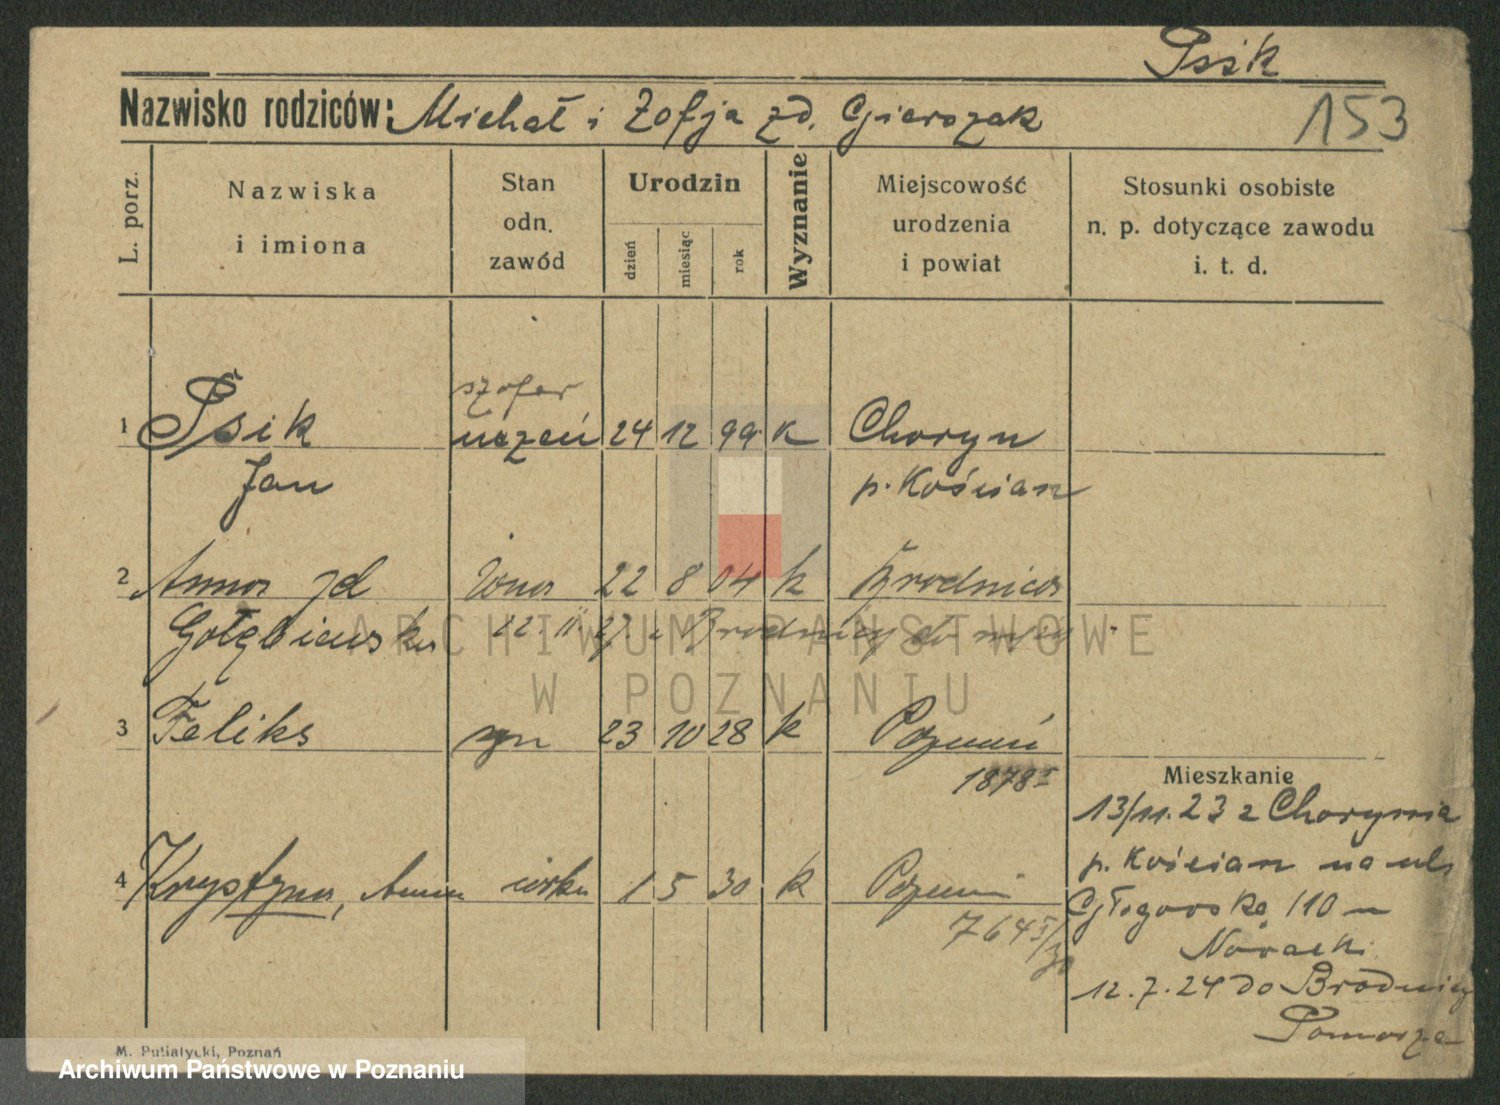 Psik
Nazwisko rodziców: Michał i Zofja zd. Gierszak
153
L. porz.
Nazwiska
i imiona
Stan
odn.
zawód
Urodzin
dzień
miesiąc
rok
Wyznanie
Miejscowość
urodzenia
i powiat
Stosunki osobiste
n. p. dotyczące zawodu
i. t. d.
szofer
1 Psik uczeń 24 12 99 K Choryn
Jan p. Kościan
2 Anna zd żona 22 8 04 k Brodnica
Gołębiewska 22.11.27. z Brodnicy do męża
3 Feliks syn 23 10 28 k Poznań
1878
Mieszkanie
13/11.23 z Chorynia
p. Kościan na ul.
4 Krystyna, Anna córka 1 5 30 k Poznań
Głogowska 110
764 I/30
12.7.24 do Brodnicy
Pomorze
M. Putiatycki, Poznań
ARCHIWUM PAŃSTWOWE
W POZNANIU
Archiwum Państwowe w Poznaniu